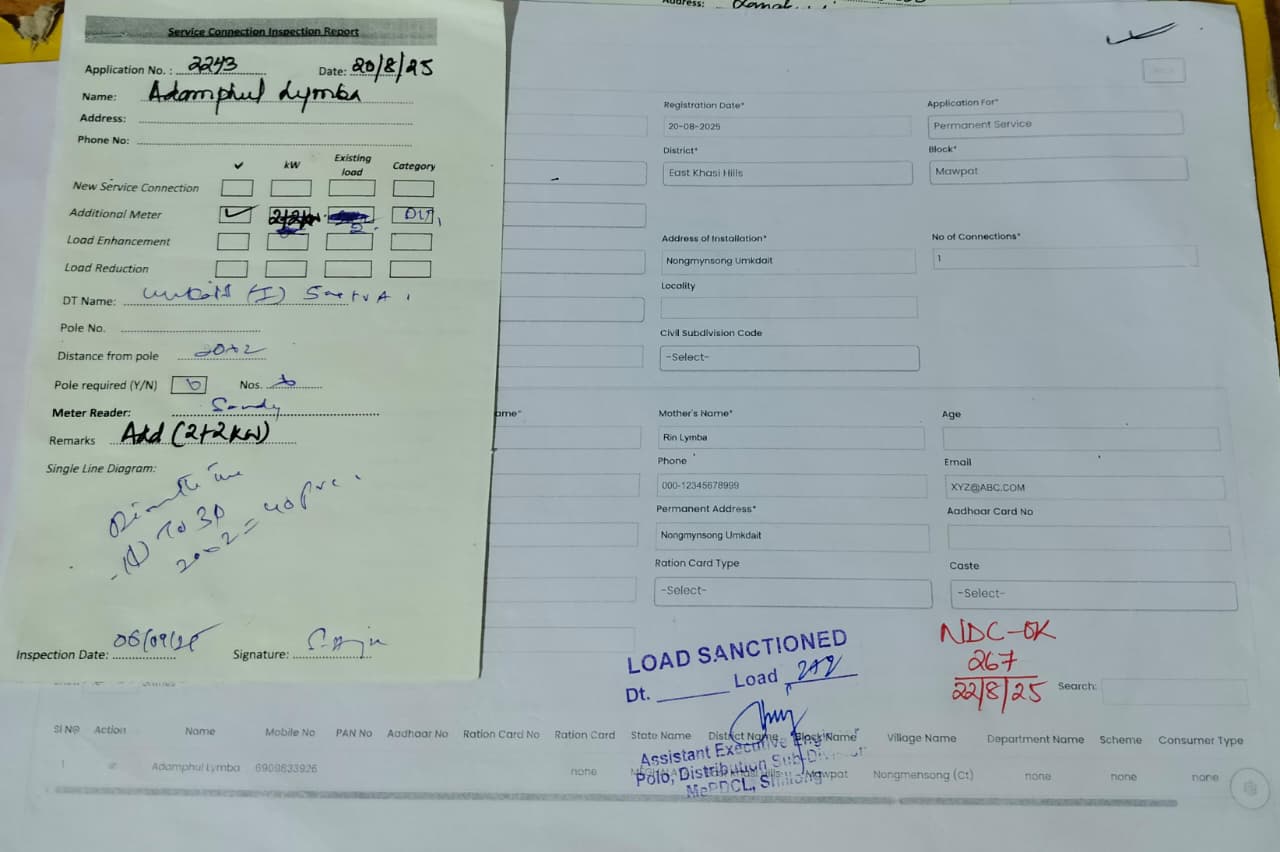 Address:
Service Connection Inspection Report
Application No. : 2243 Date: 20/8/25
Name: Adamphul Lymba
Address:
Phone No:
✓ kW Existing load Category
New Service Connection
Additional Meter ✓ 2+2kW 2
Load Enhancement
Load Reduction
DT Name: (I)
Pole No.
Distance from pole
Pole required (Y/N) Nos.
Meter Reader: Sandy
Remarks Add (2+2kW)
Single Line Diagram:
To 3P
Inspection Date: 06/09/25 Signature:
Registration Date* Application For*
20-08-2025 Permanent Service
District* Block*
East Khasi Hills Mawpat
Address of Installation* No of Connections*
Nongmynsong Umkdait 1
Locality
Civil Subdivision Code
-Select-
ame* Mother's Name* Age
Rin Lymba
Phone Email
000-12345678999 XYZ@ABC.COM
Permanent Address* Aadhaar Card No
Nongmynsong Umkdait
Ration Card Type Caste
-Select- -Select-
LOAD SANCTIONED
Dt. Load 2+2
NDC-OK
267
22/8/25
Search:
Assistant Executive
Polo, Distribution Sub-Division
MePDCL, Shillong
Sl No Action Name Mobile No PAN No Aadhaar No Ration Card No Ration Card State Name District Name Block Name Village Name Department Name Scheme Consumer Type
1 Adamphul Lymba 6909833926 none Mawpat Nongmensong (Ct) none none none